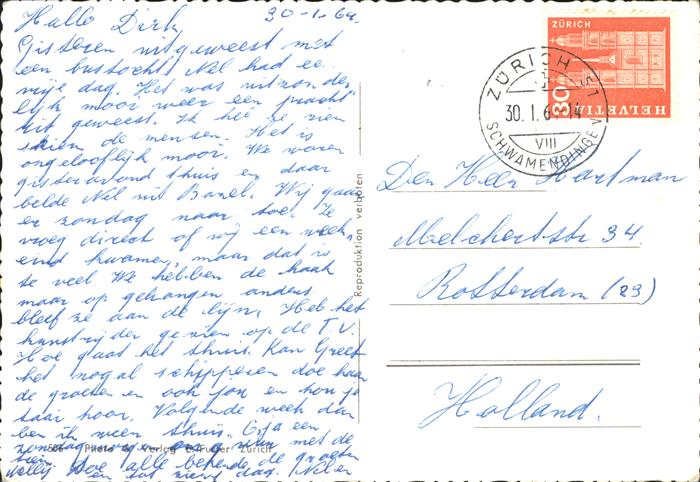 Hallo Dirk, 30-1.64.
Gisteren uitgeweest met
een bustocht. Nel had ee
vrije dag. Het was uitzonder
lijk mooi weer een pracht
rit geweest. Ik heb ze zien
skien de mensen. Het is
ongelooflijk mooi. We waren
gisteravond thuis en daar
belde Nel uit Bazel. Wij gaan
er zondag naar toe. Ze
vroeg direct of wij een week-
eind kwamen, maar dat is
te veel We hebben de haak
maar op gehangen anders
bleef ze aan de lijn, Heb het
kunstrijden gezien op de T.V.
Hoe gaat het thuis. Kan Greet
het nogal schipperen doe haar
de groeten en ook jou en hou je
taai hoor. Volgende week dan
ben ik weer thuis.
zondag met de
Doe alle bekende de groeten
tot ziens dag.
Photo & Verlag Zürich
Reproduktion verboten
ZÜRICH
30
HELVETIA
ZÜRICH 51
30.1.6 -14
VIII
SCHWAMENDINGEN
Den Heer Hartman
Melchertstr 34.
Rotterdam (23)
Holland.